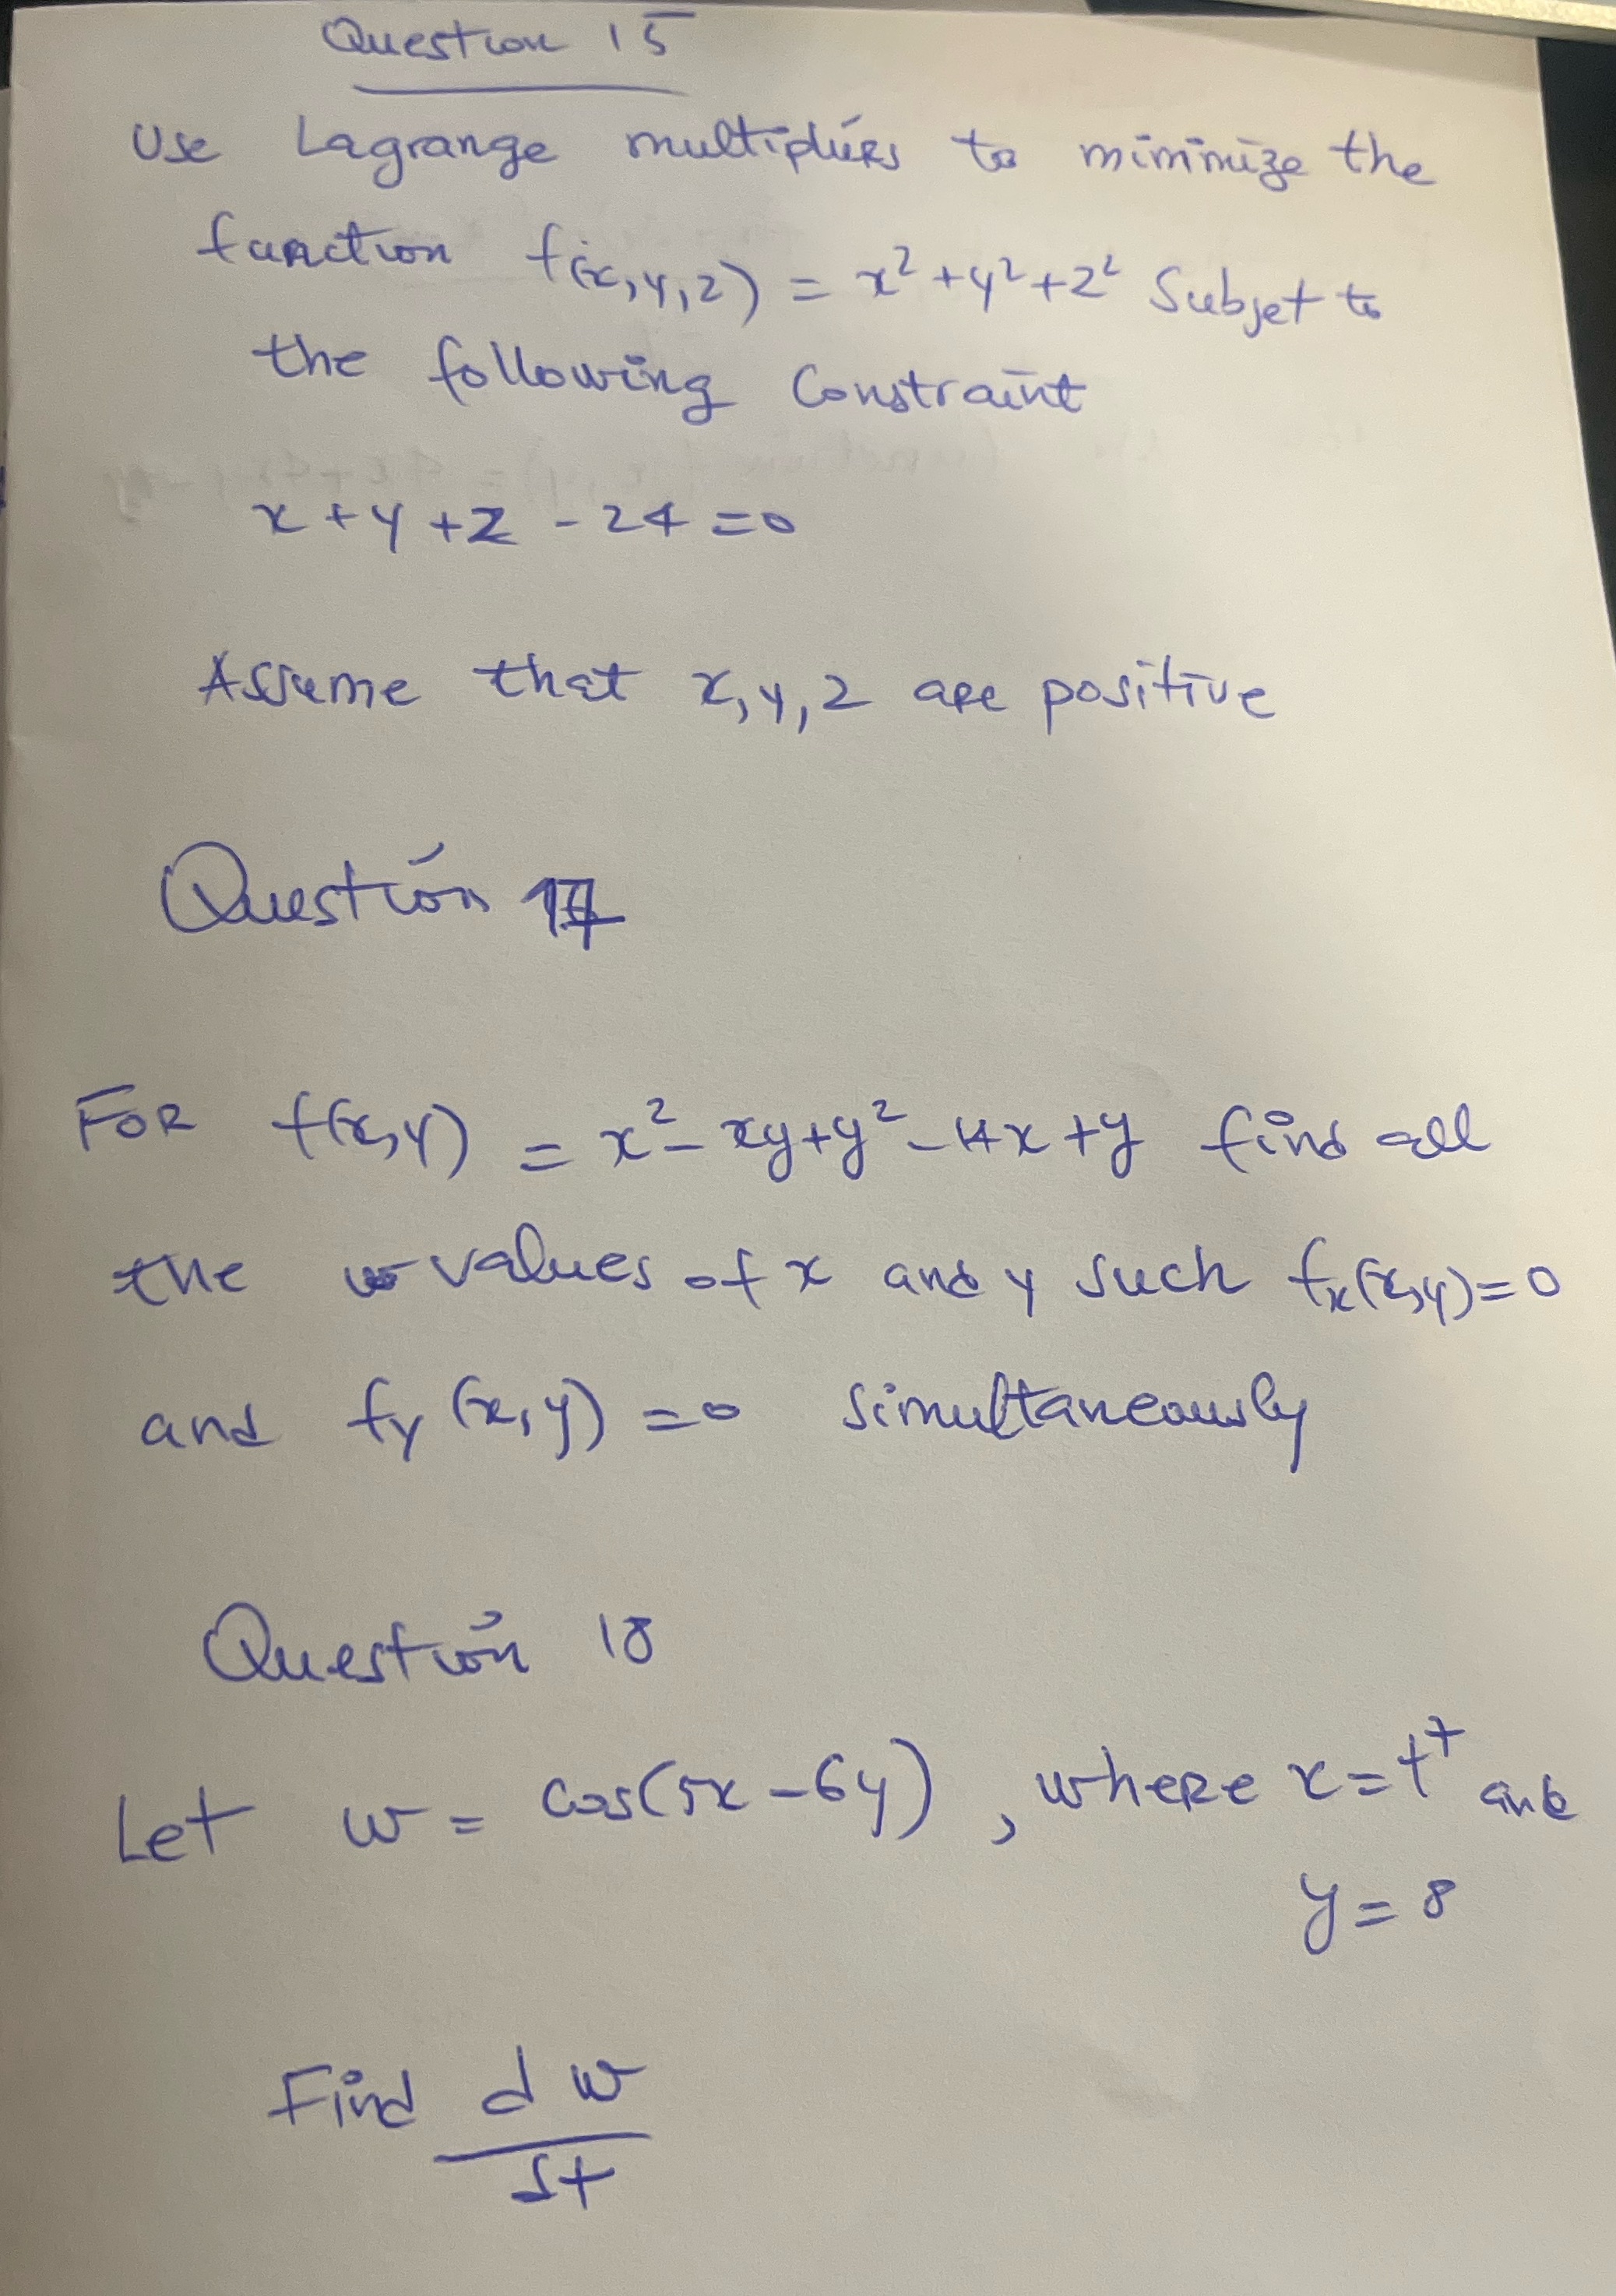 Question 15
Use Lagrange multipliers to minimize the
function f(x,y,z) = x² + y² + z² Subjet to
the following Constraint
x + y + z - 24 = 0
Assume that x, y, z are positive
Question 17
FOR f(x,y) = x² - xy + y² - 14x + y find all
the values of x and y such fx(x,y) = 0
and fy (x,y) = 0 simultaneously
Question 18
Let w = cos(5x - 6y), where x = t⁷ and
y = 8
Find dw
dt